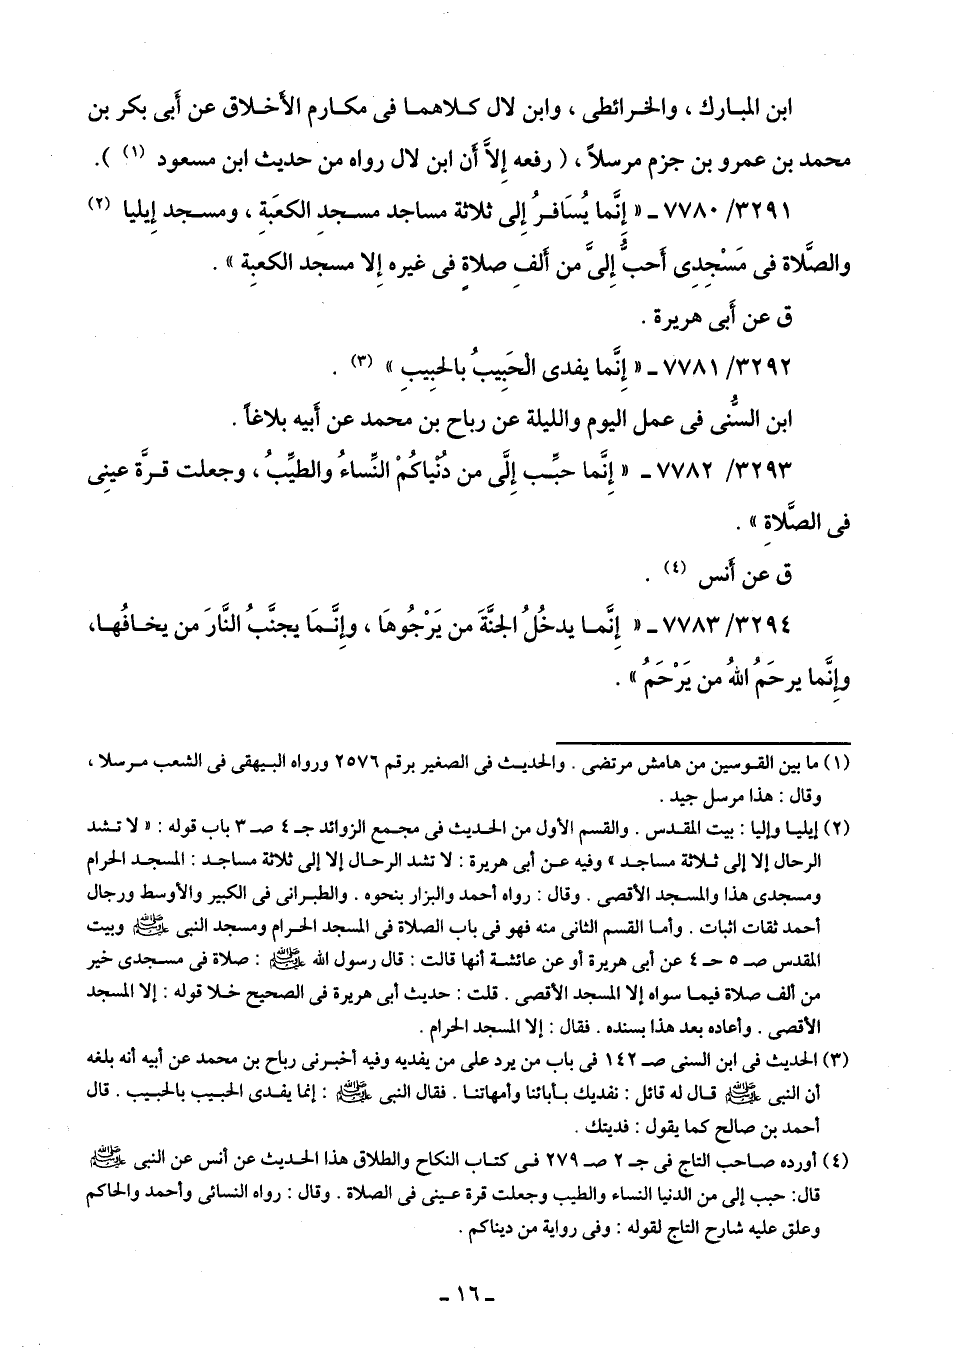 ابن المبارك ، والخرائطى ، وابن لال كلاهما فى مكارم الأخلاق عن أبى بكر بن
محمد بن عمرو بن جزم مرسلاً ، ( رفعه إلاَّ أن ابن لال رواه من حديث ابن مسعود (١) ).
٧٧٨٠/٣٢٩١ ـ « إنَّما يُسَافرُ إلى ثلاثة مساجد مسجدِ الكعبَةِ ، ومسجد إيليا (٢)
والصَّلاة فى مَسْجِدِى أحبُّ إلىَّ من ألفِ صلاةٍ فى غيره إلا مسجد الكعبة » .
ق عن أبى هريرة .
٧٧٨١/٣٢٩٢ ـ « إنَّما يفدى الْحَبِيبُ بالحَبِيبِ » (٣) .
ابن السنُّى فى عمل اليوم والليلة عن رباح بن محمد عن أبيه بلاغاً .
٧٧٨٢/٣٢٩٣ ـ « إنَّما حبِّب إلَّى من دُنْياكُمْ النِّساءُ والطيِّبُ ، وجعلت قرَّة عينِى
فى الصَّلاةِ » .
ق عن أنس (٤) .
٧٧٨٣/٣٢٩٤ ـ « إنَّما يدخُلُ الجنَّةَ من يَرْجُوهَا ، وإنَّمَا يجنَّبُ النَّارَ من يخافُها،
وإنَّما يرحَمُ اللهُ من يَرْحَمُ » .
(١) ما بين القوسين من هامش مرتضى . والحديث فى الصغير برقم ٢٥٧٦ ورواه البيهقى فى الشعب مرسلا ،
وقال : هذا مرسل جيد .
(٢) إيليا وإليا : بيت المقدس . والقسم الأول من الحديث فى مجمع الزوائد جـ ٤ صـ ٣ باب قوله : « لا تشد
الرحال إلا إلى ثلاثة مساجد » وفيه عن أبى هريرة : لا تشد الرحال إلا إلى ثلاثة مساجد : المسجد الحرام
ومسجدى هذا والمسجد الأقصى . وقال : رواه أحمد والبزار بنحوه . والطبرانى فى الكبير والأوسط ورجال
أحمد ثقات اثبات . وأما القسم الثانى منه فهو فى باب الصلاة فى المسجد الحرام ومسجد النبى ﷺ وبيت
المقدس صـ ٥ حـ ٤ عن أبى هريرة أو عن عائشة أنها قالت : قال رسول الله ﷺ : صلاة فى مسجدى خير
من ألف صلاة فيما سواه إلا المسجد الأقصى . قلت : حديث أبى هريرة فى الصحيح خلا قوله : إلا المسجد
الأقصى . وأعاده بعد هذا بسنده . فقال : إلا المسجد الحرام .
(٣) الحديث فى ابن السنى صـ ١٤٢ فى باب من يرد على من يفديه وفيه أخبرنى رباح بن محمد عن أبيه أنه بلغه
أن النبى ﷺ قال له قائل : نفديك بأبائنا وأمهاتنا . فقال النبى ﷺ : إنما يفدى الحبيب بالحبيب . قال
أحمد بن صالح كما يقول : فديتك .
(٤) أورده صاحب التاج فى جـ ٢ صـ ٢٧٩ فى كتاب النكاح والطلاق هذا الحديث عن أنس عن النبى ﷺ
قال: حبب إلى من الدنيا النساء والطيب وجعلت قرة عينى فى الصلاة . وقال : رواه النسائى وأحمد والحاكم
وعلق عليه شارح التاج لقوله : وفى رواية من ديناكم .
ـ ١٦ ـ